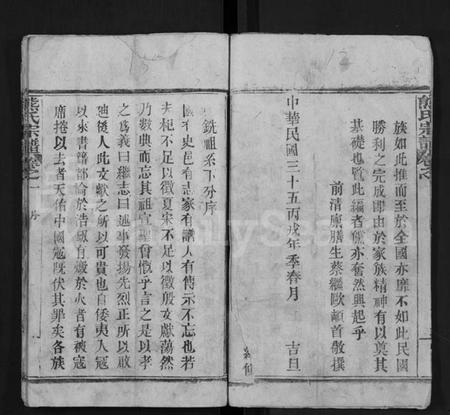 族如此推而至於全國亦靡不如此民國
勝利之完成即由於家族精神有以奠其
基礎也覽此編者獻亦奮然興起乎
前清廩膳生蔡繼歐頓首敬撰
中華民國三十五丙戌年季春月 吉旦
熊氏宗譜卷之一
銑祖系下分序
國有史邑有志家有譜人有傳示不忘也若
夫杞不足以徵夏宋不足以徵殷文獻蕩然
乃數典而忘其祖宣聖嘗慨乎言之是以孝
之為義曰繼志曰述事發揚先烈正所以啟
迪後人此文獻之所以可貴也自倭夷入寇
以來書籍部淪於浩劫有燬於火者有被寇
席捲以去者天佑中國寇既伏其罪矣各族
熊氏宗譜卷之一 序